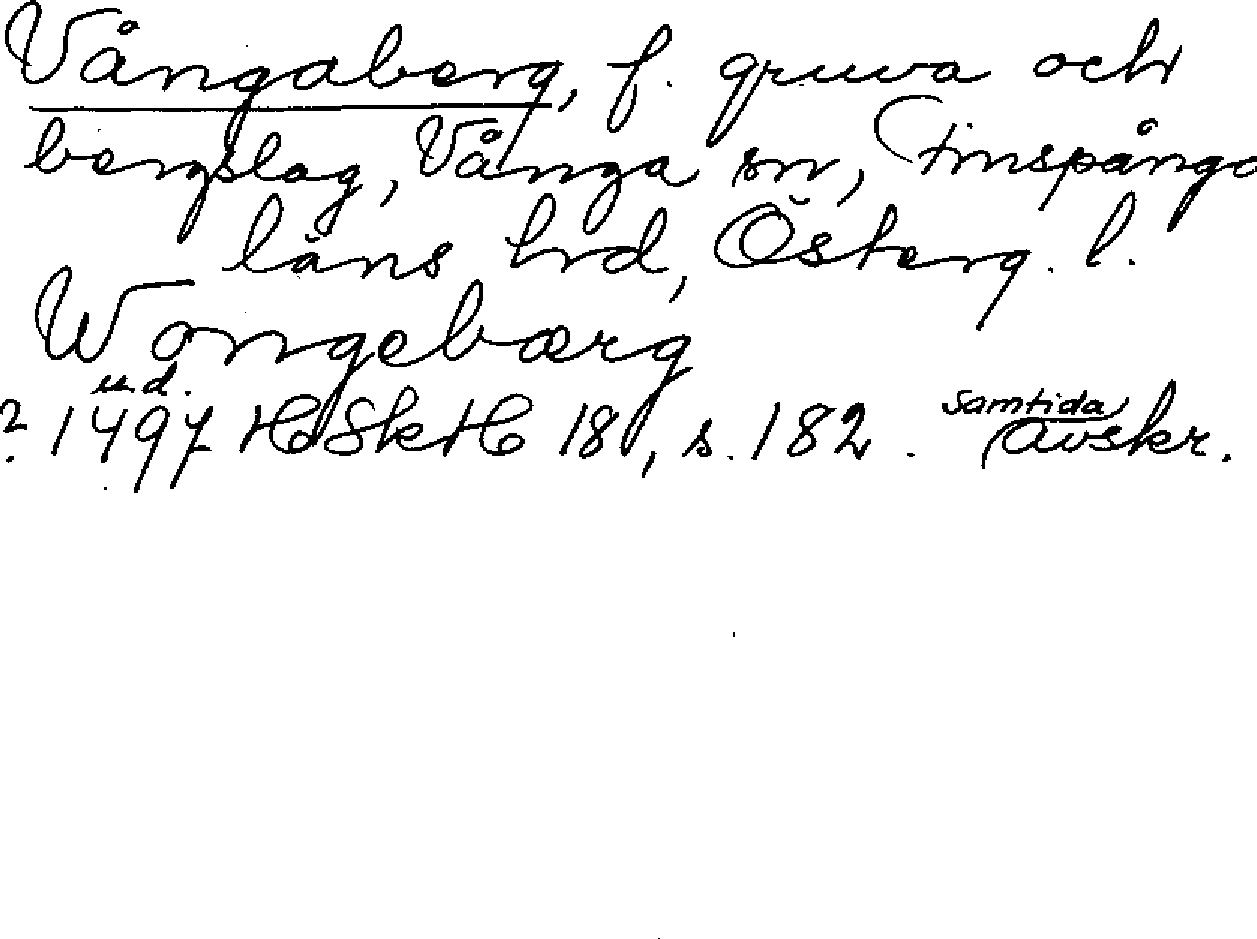 Vångaberg, f. gruva och
bergslag, Vånga sn, Finspånga
läns hd, Österg. l.
Wongebærg
u.d.
? 1497 HSkH 18, s. 182. samtida avskr.